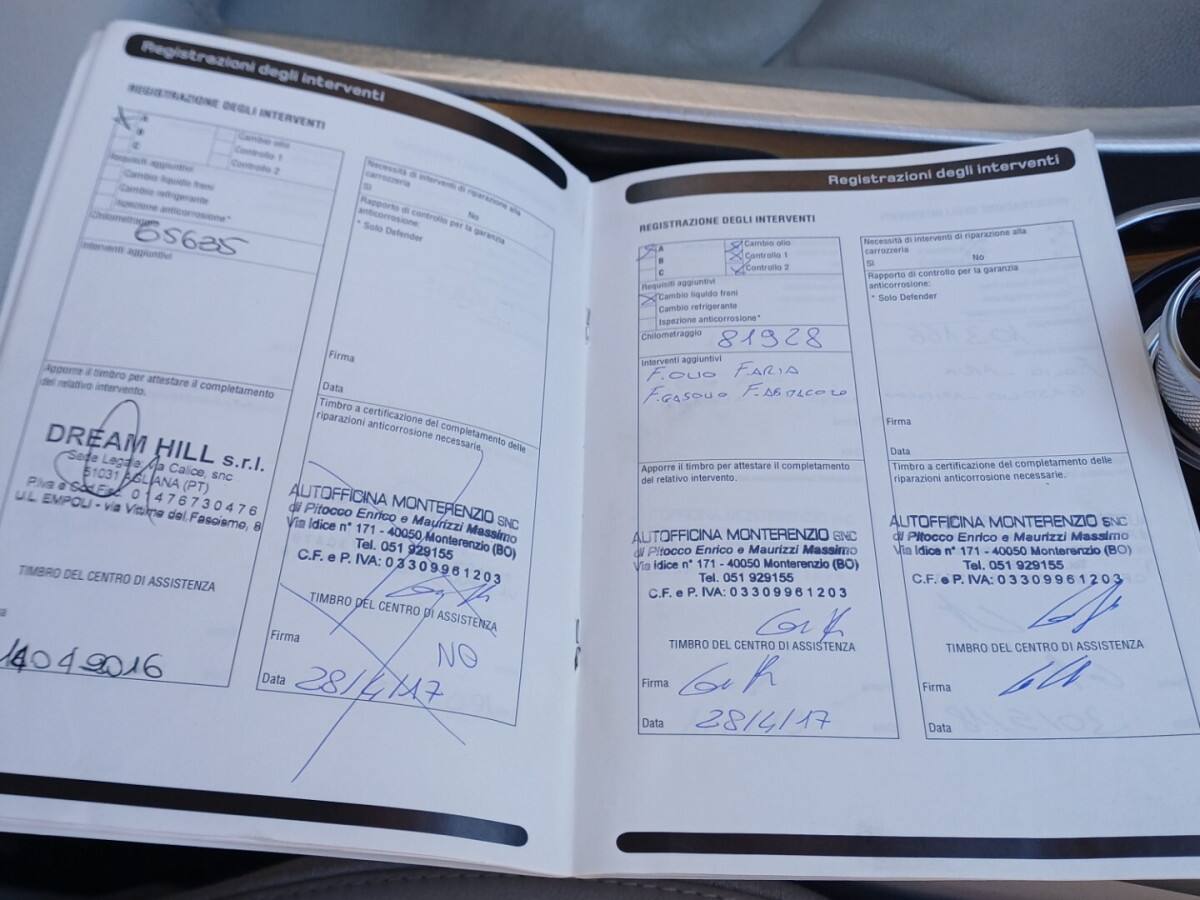 Registrazioni degli interventi
REGISTRAZIONE DEGLI INTERVENTI
A
B
C
Cambio olio
Controllo 1
Controllo 2
Requisiti aggiuntivi
Cambio liquido freni
Cambio refrigerante
Ispezione anticorrosione*
Chilometraggio
65635
Interventi aggiuntivi
Apporre il timbro per attestare il completamento
del relativo intervento.
DREAM HILL s.r.l.
Sede Legale: via Calice, snc
51031 AGLIANA (PT)
P.Iva e Cod.Fisc. 01476730476
U.L. EMPOLI - via Vittime del Fascismo, 8
TIMBRO DEL CENTRO DI ASSISTENZA
14042016
Necessità di interventi di riparazione alla
carrozzeria
Sì No
Rapporto di controllo per la garanzia
anticorrosione:
* Solo Defender
Firma
Data
Timbro a certificazione del completamento delle
riparazioni anticorrosione necessarie.
AUTOFFICINA MONTERENZIO SNC
di Pitocco Enrico e Maurizzi Massimo
Via Idice n° 171 - 40050 Monterenzio (BO)
Tel. 051 929155
C.F. e P. IVA: 03309961203
TIMBRO DEL CENTRO DI ASSISTENZA
Firma
NO
Data 28/4/17
Registrazioni degli interventi
REGISTRAZIONE DEGLI INTERVENTI
A
B
C
Cambio olio
Controllo 1
Controllo 2
Requisiti aggiuntivi
Cambio liquido freni
Cambio refrigerante
Ispezione anticorrosione*
Chilometraggio 81928
Interventi aggiuntivi
F. OLIO F ARIA
F. GASOLIO F. ABITACOLO
Apporre il timbro per attestare il completamento
del relativo intervento.
AUTOFFICINA MONTERENZIO SNC
di Pitocco Enrico e Maurizzi Massimo
Via Idice n° 171 - 40050 Monterenzio (BO)
Tel. 051 929155
C.F. e P. IVA: 03309961203
TIMBRO DEL CENTRO DI ASSISTENZA
Firma
Data 28/4/17
Necessità di interventi di riparazione alla
carrozzeria
Sì No
Rapporto di controllo per la garanzia
anticorrosione:
* Solo Defender
Firma
Data
Timbro a certificazione del completamento delle
riparazioni anticorrosione necessarie.
AUTOFFICINA MONTERENZIO SNC
di Pitocco Enrico e Maurizzi Massimo
Via Idice n° 171 - 40050 Monterenzio (BO)
Tel. 051 929155
C.F. e P. IVA: 03309961203
TIMBRO DEL CENTRO DI ASSISTENZA
Firma
Data